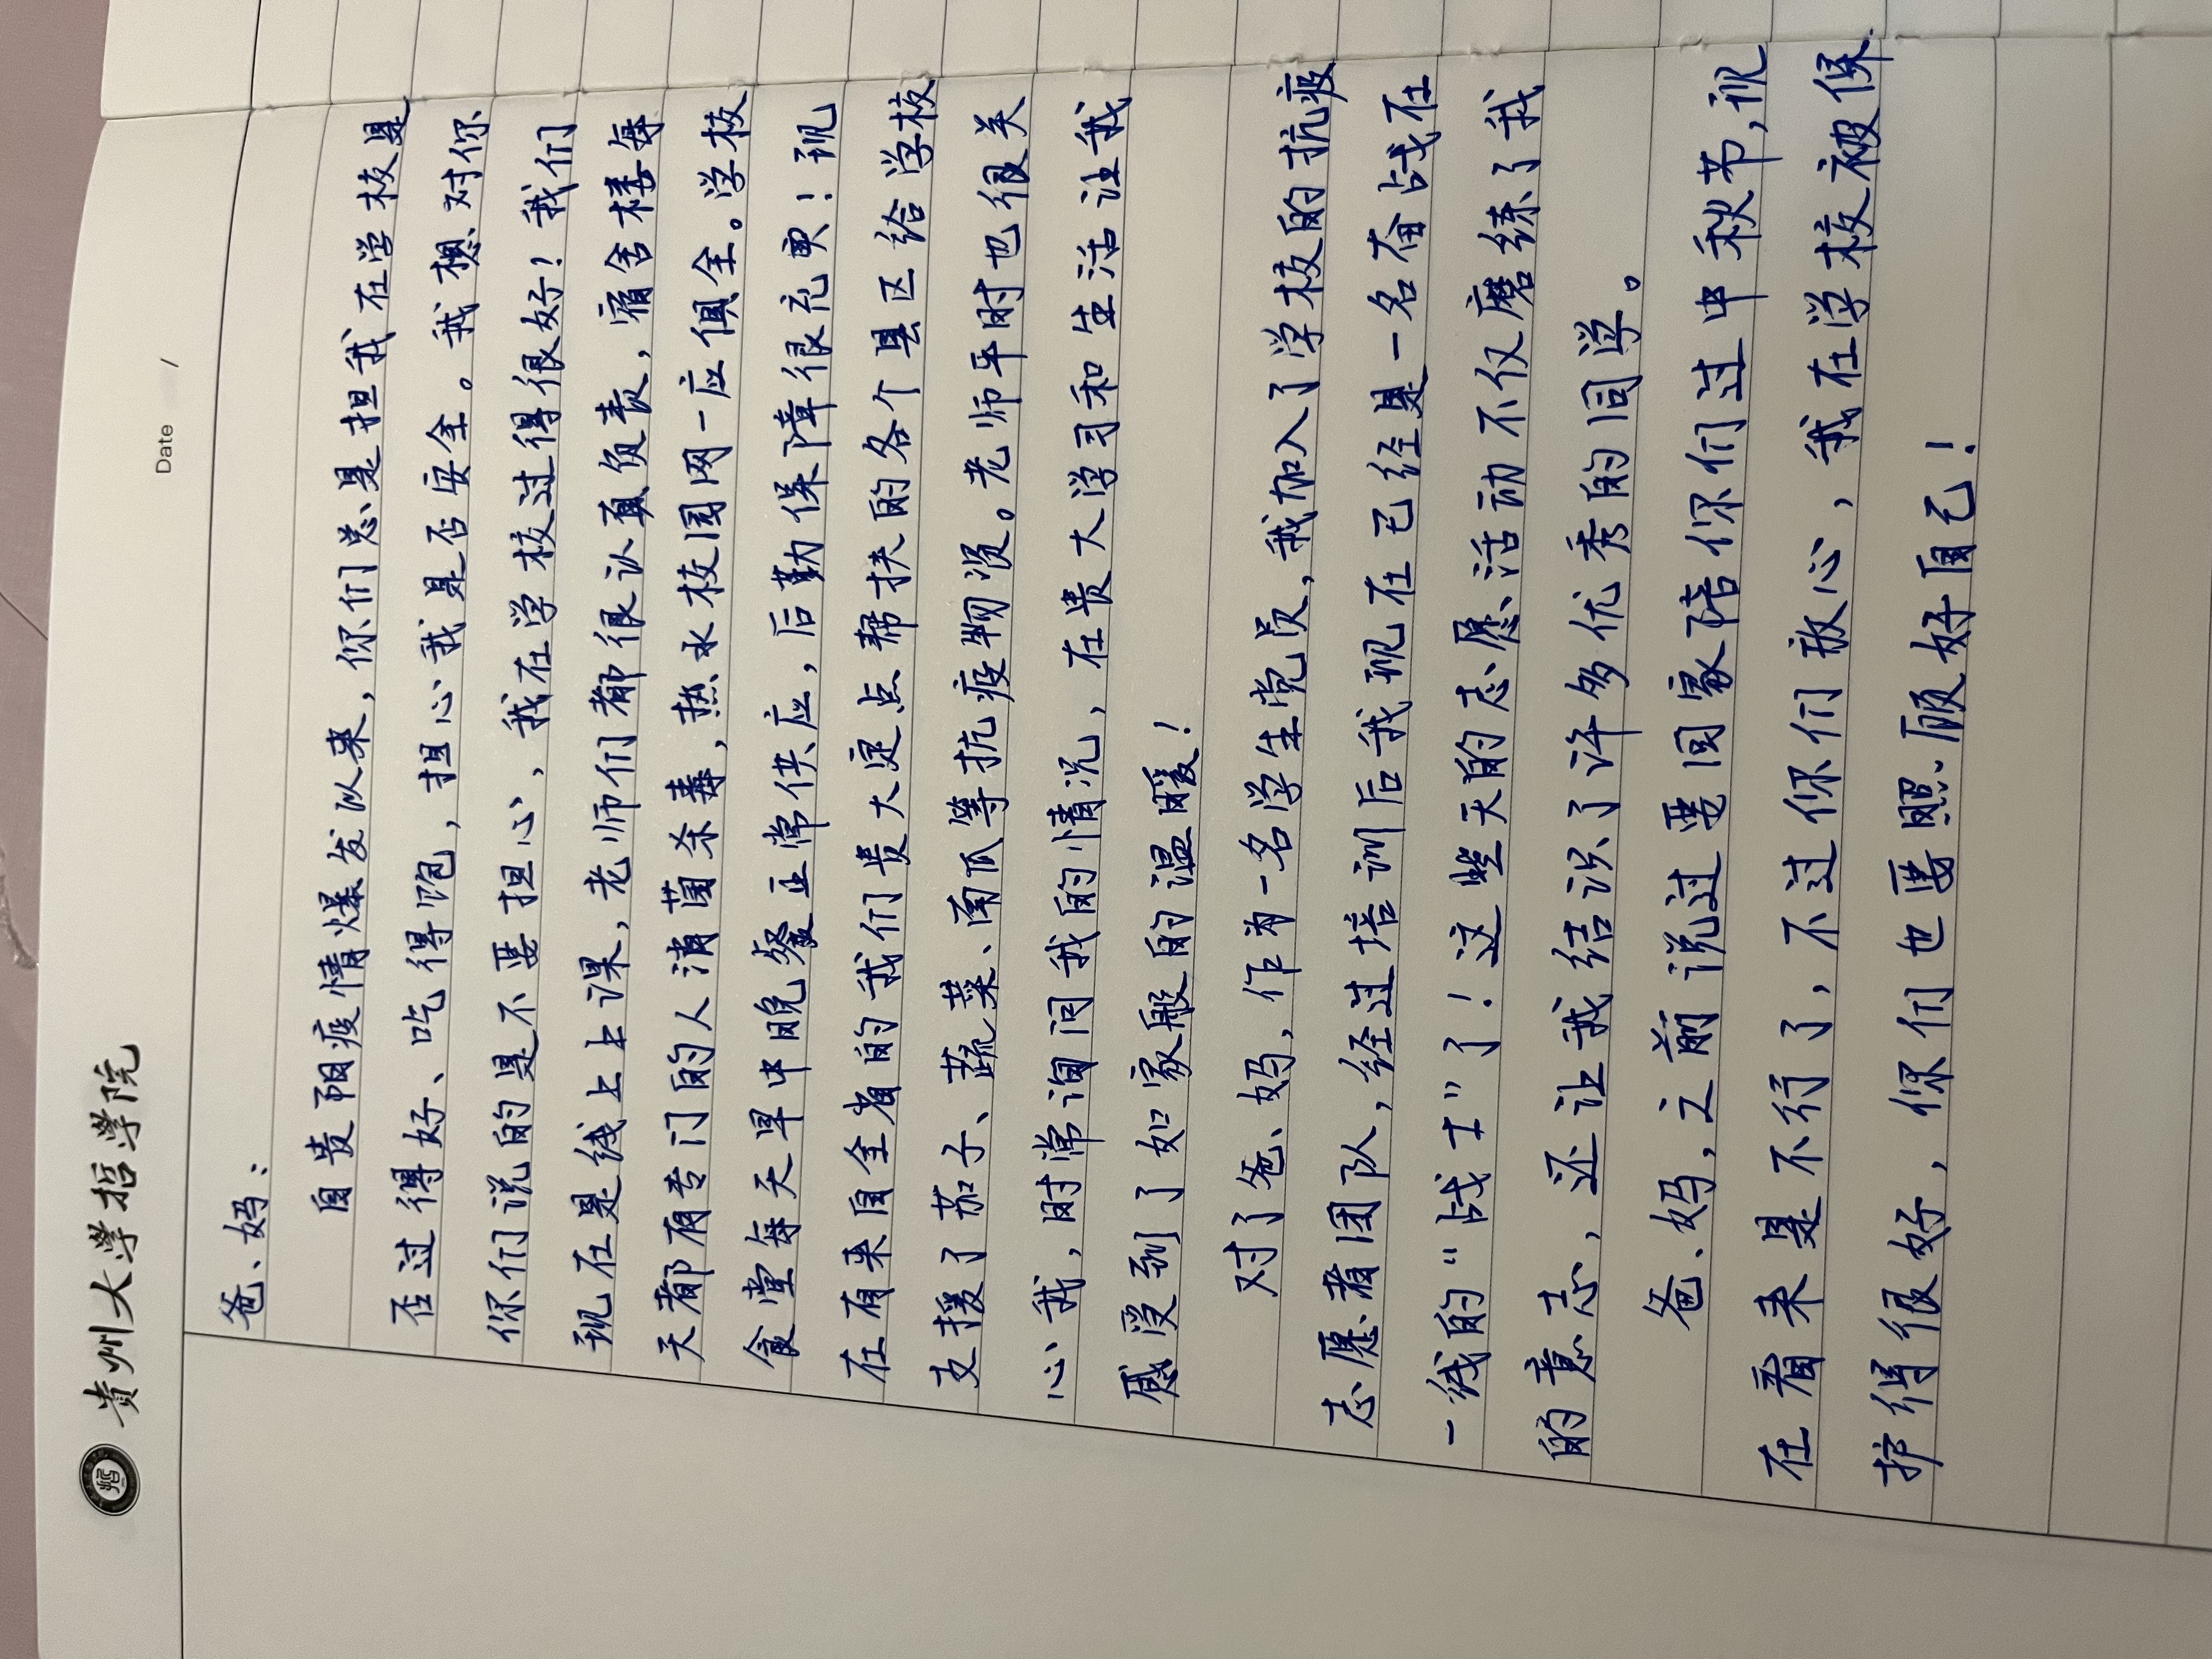 贵州大学哲学院
Date /
爸、妈：
自贵阳疫情爆发以来，你们总是担我在学校是
否过得好、吃得饱，担心我是否安全。我想对你
你们说的是不要担心，我在学校过得很好！我们
现在是线上上课，老师们都很认真负责，宿舍楼每
天都有专门的人消菌杀毒，热水校园网一应俱全。学校
食堂每天早中晚餐正常供应，后勤保障很充实！现
在有来自全省的我们贵大定点帮扶的各个县区给学校
支援了茄子、蔬菜、南瓜等抗疫物资。老师平时也很关
心我，时常询问我的情况，在贵大学习和生活让我
感受到了如家般的温暖！
对了爸、妈，作为一名学生党员，我加入了学校的抗疫
志愿者团队，经过培训后我现在已经是一名奋战在
一线的“战士”了！这些天的志愿活动不仅磨练了我
的意志，还让我结识了许多优秀的同学。
爸、妈，之前说过要回家陪你们过中秋节，现
在看来是不行了，不过你们放心，我在学校被保
护得很好，你们也要照顾好自己！